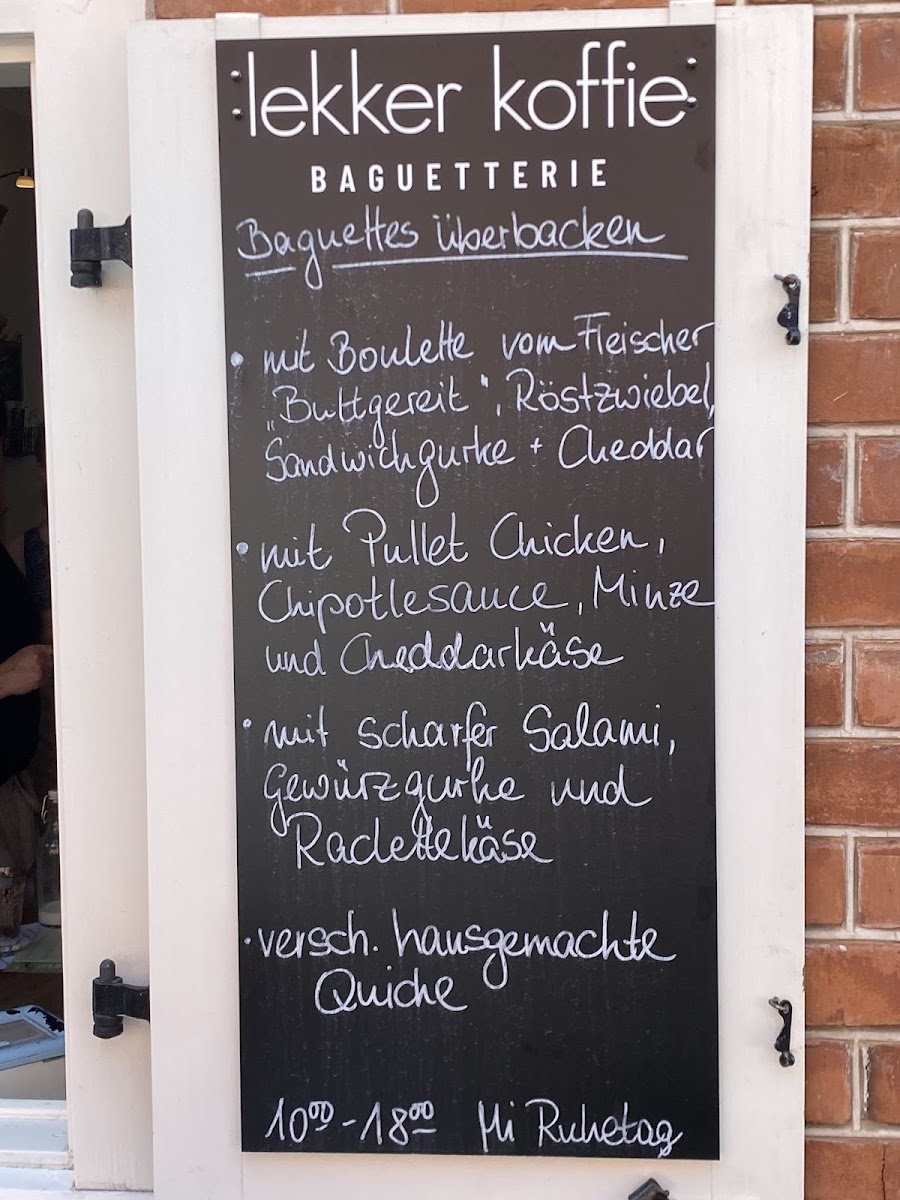 lekker koffie
BAGUETTERIE
Baguettes überbacken
• mit Boulette vom Fleischer
"Buttgereit", Röstzwiebel,
Sandwichgurke + Cheddar
• mit Pullet Chicken,
Chipotlesauce, Minze
und Cheddarkäse
• mit scharfer Salami,
Gewürzgurke und
Raclettekäse
• versch. hausgemachte
Quiche
10⁰⁰ - 18⁰⁰ Mi Ruhetag